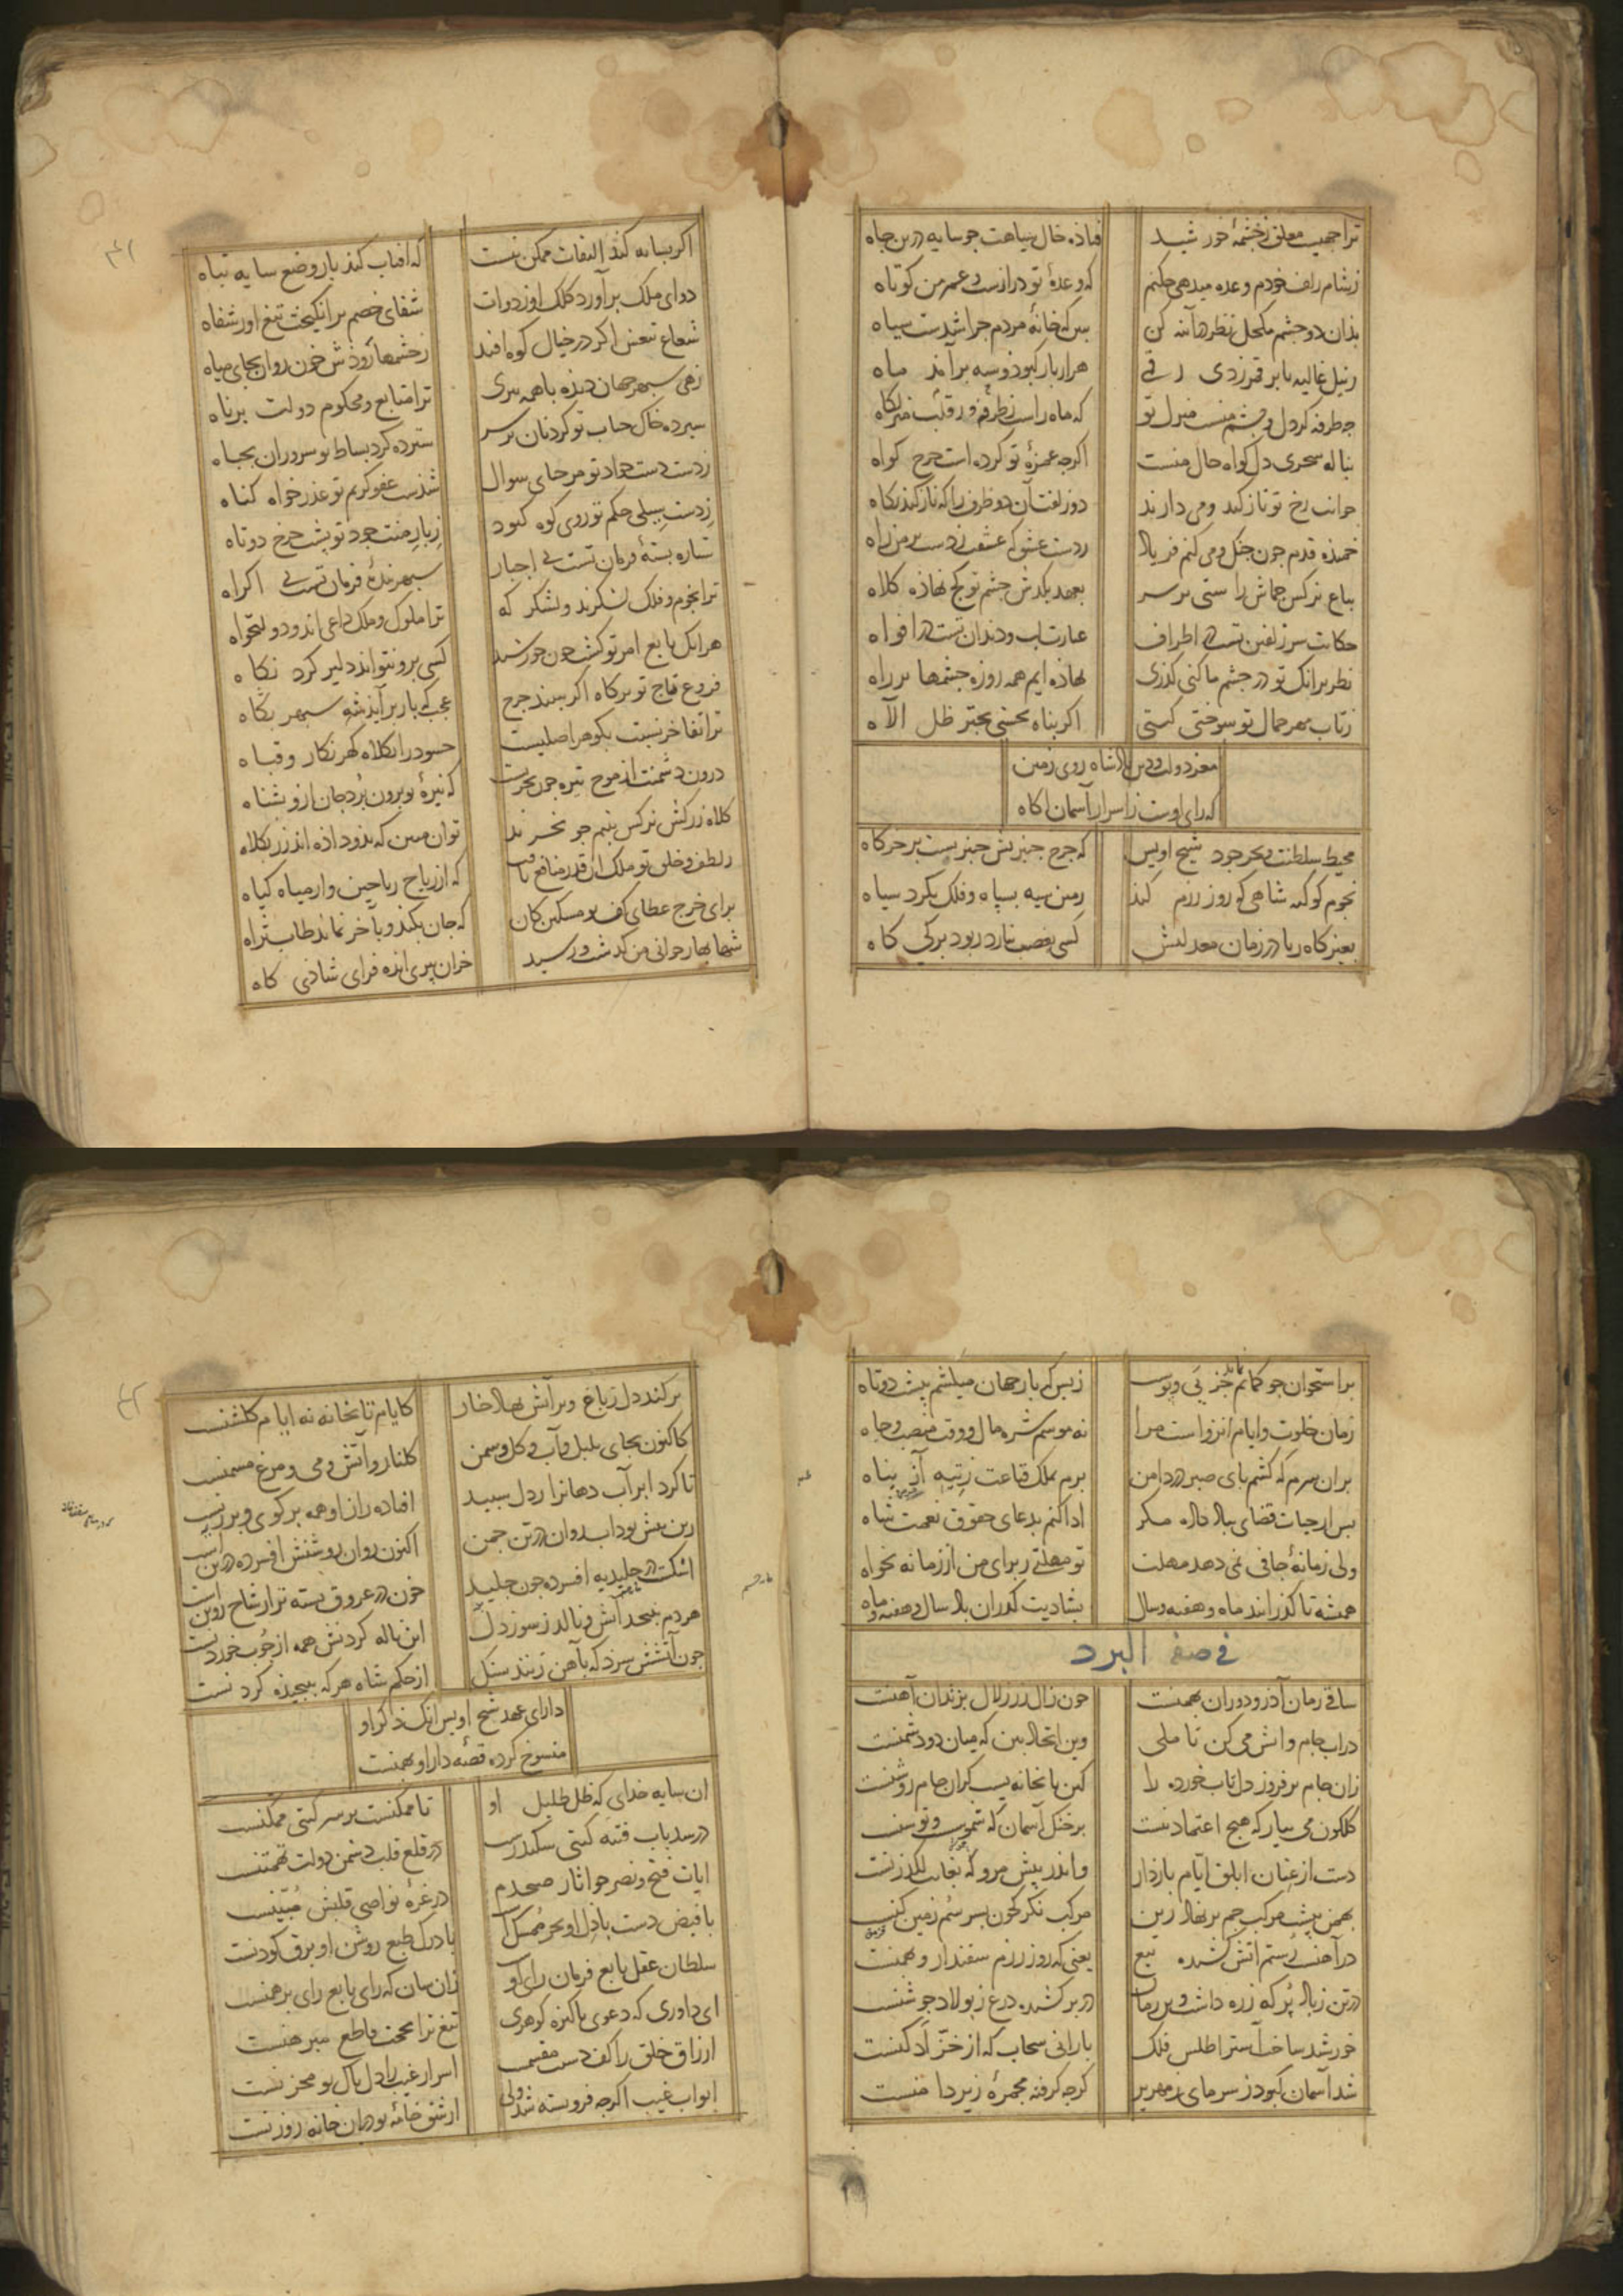 تراجهیست معلق زچشمهٔ خورشید فتاده خال سیاهت جو سایه در بن جاه
زشام زلف خودم وعده میدهی حکنم که وعدهٔ تو درازست و عمر من کوتاه
بذان دو جشم مکحل نظر هر آینه کن ببین که خانهٔ مردم جرا شدست سیاه
زنیل غالیه تا بر قمر زدی رقمی هزار بار کبود و سیه برآمد ماه
جه طرفه کر دل و جشم منست منزل تو که ماه راست زطرفه و ز قلب منزلکاه
بناله سحری دل کواه حال منست اکرجه غمزهٔ تو کرده است جرح کواه
جوانب رخ تو ناز کند و می دارند دو زلفت آن دو طرف را که ناز کند نکاه
خمیذه قدم جون جنک و می کنم فریاد زدست عشق که عشقت زدست بر من راه
بباغ نرکس جماش راستی بر سر بعهد بکدش جشم تو کج نهاذه کلاه
حکایت سر زلفین تست در اطراف عبارت لب و دندان تست در افواه
نظر برانک تو در جشم ما کنی کذری نهاذه ایم همه روزه جشمها بر راه
زتاب مهر جمال تو سوختی کیتی اکر بناه نجستی بجتر ظل الاه
معز دولت و دین باذشاه روی زمین
که رای اوست زاسرار آسمان اکاه
محیط سلطنت و بحر جود شیخ اویس که جرخ جنبرش جنبریست بر خرکاه
نجوم کوکبه شاهی که روز رزم کند زمین سیه بسپاه و فلک بکرد سیاه
بغیر کاه ربا در زمان معدلتش کسی بغصب نیارد ربود برکی کاه
اکر بسایه کند التفات ممکن نیست که افتاب کند باز وضع سایه تباه
دوای ملک برآورد کلک او ز دوات شفای خصم برانکیخت تیغ او ز شفاه
شعاع تیغش اکر در خیال کوه افتد زجشمها رودش خون روان بجای میاه
زهی سپهر جهان دیذه با همه پیری ترا متابع و محکوم دولت برناه
سپرده خاک جناب تو کردنان بر سر سترده کرد بساط تو سروران بجباه
زدست دست جواد تو مرحبای سوال شذست عفو کریم تو عذر خواه کناه
زدست سیلی حکم تو روی کوه کبود زبار منت جود تو پشت جرخ دوتاه
ستاره بستهٔ فرمان تست بی اجبار سپهر بندهٔ فرمان تست بی اکراه
ترا نجوم و فلک لشکرند و لشکر که ترا ملوک و ملک داعی اند و دولتخواه
هرانک تابع امر تو کشت جون خورشید کسی برو نتواند دلیر کرد نکاه
فروغ تاج تو بر کاه اکر ببیند جرخ عجب که بار بر آیذ شه سپهر بکاه
ترا تفاخر نسبت بکوهر اصلیست حسود را بکلاه کهرنکار و قباه
درون دشمنت از موج تیره جون بحریست که نیزهٔ تو برون بُرد جان ازو بشناه
کلاه زرکش نرکس بنیم جو نخرند توان مبین که بذو داذه اند زر بکلاه
زلطف و خلق تو ملک ان قدر منافع یافت که از ریاح ریاحین و از میاه کیاه
برای خرج عطای کف تو مسکین کان که جان بکند و بآخر نماند طاب ثراه
شها بهار جوانی من کذشت و رسید خزان پیری انده فزای شادی کاه
براستخوان جو کمانم نماند جز پی و پوست زبس که بار جهان میکشم بپشت دوتاه
زمان خلوت و ایام انزواست مرا نه موسم شره مال و وقت منصب و جاه
بران سرم که کشم پای صبر در دامن برم بملک قناعت زتیه آز پناه
پس از حیات قضای بلاد داد مکر ادا کنم بدعای حقوق نعمت شاه
ولی زمانهٔ جافی نمی دهد مهلت تو مهلتی ز برای من از زمانه بخواه
همیشه تا کذرانند ماه و هفته و سال بشادیت کذران باد سال و هفته و ماه
فی صفة البرد
ساقی زمان آذر و دوران بهمنست جون زال زر زلال بزندان آهنست
دراب جام واتش می کن تا ملی وین اتحاد بین که میان دو دشمنست
زان جام برفروز دل تاب خورده را کین تابخانه بیست کزان جام روشنست
کلکون می بیار که هیج اعتماد نیست بر خنک آسمان که شموس و توسنست
دست از عنان ابلق ایام بازدار و اندر پیش مرو که بغایت لکدزنست
بهمن پشت مرکب جم بر نهاد زین مرکب نکر که جون بسر سُم زمین کنست
در آهنست رستم اتش کشیده تیغ یعنی که روز رزم سفندار و بهمنست
در تن زباد پُر که زره داشت و بر زمان در بر کشیده درع ز پولاد جوشنست
خورشید ساخت آستر اطلس فلک بارانی سحاب که از خزّ ادکنست
شد آسمان کبود ز سرمای زمهریر کرجه کرفته مجمرهٔ زیر دامنست
بر کند دل زباغ و بر آتش نهاد خار کایام تابخانه نه ایام کلشنست
کاکنون بجای بلبل و آب و کل و سمن کلنار و آتش و می و مرغ مسمنست
تا کرد ابر آب دهانرا ز دل سپید افتاده راز او همه بر کوی و برزنست
زین پیش بود اب روان در تن جمن اکنون روان روشنش افسرده در تنست
اشکست در جلیدیه افسرده جون جلید خون در عروق بسته تر از شاخ روینست
هر دم بنیجد آتش و نالد زسوز دل این ناله کردنش همه از جوب خوردنست
جون آتشش سزد که بآهن زنند سنک از حکم شاه هرکه بپیجیذه کردنست
دارای عهد شیخ اویس انک ذکر او
منسوخ کرده قصهٔ دارا و بهمنست
ان سایه خدای که ظل ظلیل او تا ممکنست بر سر کیتی ممکنست
در سد باب فتنه کیتی سکندرست در قلع قلب دشمن دولت تهمتنست
ایات فتح و نصر جو اثار صبحدم در غرهٔ نواصی قلبش مبینست
با فیض دست باذل او بحر ممسکست با درک طبع روشن او برق کودنست
سلطان عقل تابع فرمان رای او زان سان که رای تابع رای برهمنست
ای داوری که دعوی پاکیزه کوهری تیغ ترا بحجت قاطع مبرهنست
ارزاق خلق را کف دست مقسمست اسرار غیب را دل پاک تو مخزنست
ابواب غیب اکرجه فروبسته شد ولی از شق خامهٔ تو دران خانه روزنست